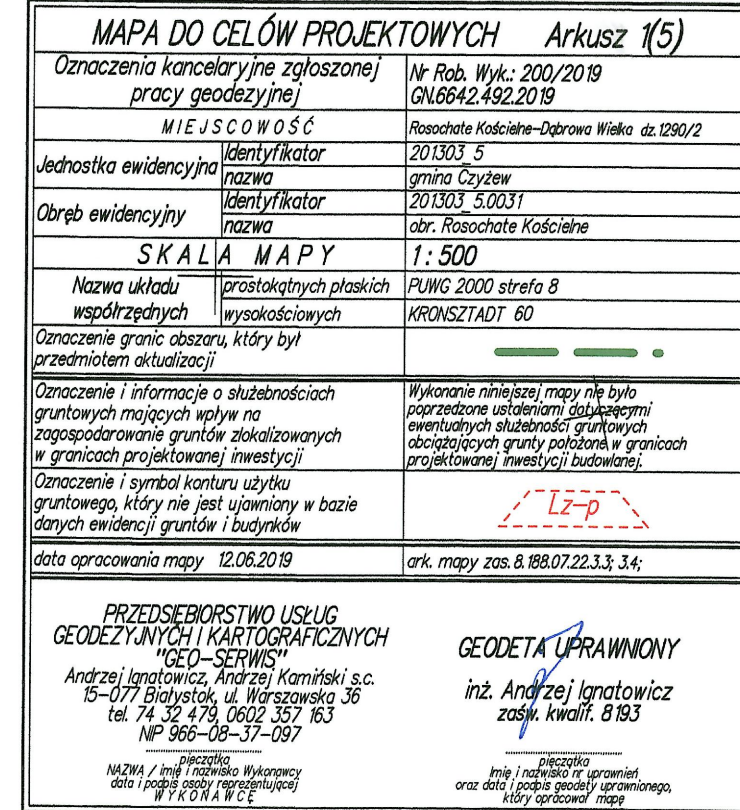 MAPA DO CELÓW PROJEKTOWYCH Arkusz 1(5)
Oznaczenia kancelaryjne zgłoszonej
pracy geodezyjnej
Nr Rob. Wyk.: 200/2019
GN.6642.492.2019
MIEJSCOWOŚĆ
Rosochate Kościelne-Dąbrowa Wielka dz.1290/2
Jednostka ewidencyjna
Identyfikator
201303_5
nazwa
gmina Czyżew
Obręb ewidencyjny
Identyfikator
201303_5.0031
nazwa
obr. Rosochate Kościelne
SKALA MAPY
1:500
Nazwa układu
współrzędnych
prostokątnych płaskich
PUWG 2000 strefa 8
wysokościowych
KRONSZTADT 60
Oznaczenie granic obszaru, który był
przedmiotem aktualizacji
Oznaczenie i informacje o służebnościach
gruntowych mających wpływ na
zagospodarowanie gruntów zlokalizowanych
w granicach projektowanej inwestycji
Wykonanie niniejszej mapy nie było
poprzedzone ustaleniami dotyczącymi
ewentualnych służebności gruntowych
obciążających grunty położone w granicach
projektowanej inwestycji budowlanej.
Oznaczenie i symbol konturu użytku
gruntowego, który nie jest ujawniony w bazie
danych ewidencji gruntów i budynków
Lz-p
data opracowania mapy 12.06.2019
ark. mapy zas. 8.188.07.22.3.3; 3.4;
PRZEDSIĘBIORSTWO USŁUG
GEODEZYJNYCH I KARTOGRAFICZNYCH
"GEO-SERWIS"
Andrzej Ignatowicz, Andrzej Kamiński s.c.
15-077 Białystok, ul. Warszawska 36
tel. 74 32 479, 0602 357 163
NIP 966-08-37-097
pieczątka
NAZWA / imię i nazwisko Wykonawcy
data i podpis osoby reprezentującej
WYKONAWCĘ
GEODETA UPRAWNIONY
inż. Andrzej Ignatowicz
zaśw. kwalif. 8193
pieczątka
Imię i nazwisko nr uprawnień
oraz data i podpis geodety uprawnionego,
który opracował mapę